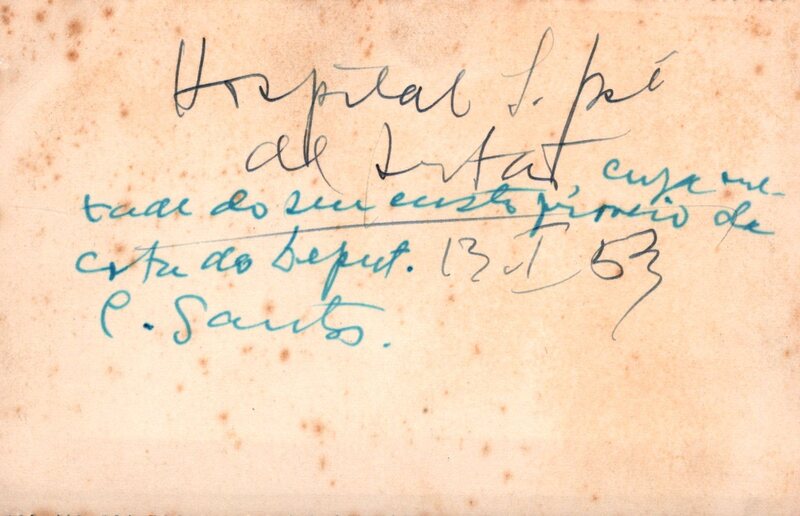 Hospital S. José
do Sertão
cuja me-
tade do seu custo proveio da
cota do Deput. 13.I.53
C. Santos.